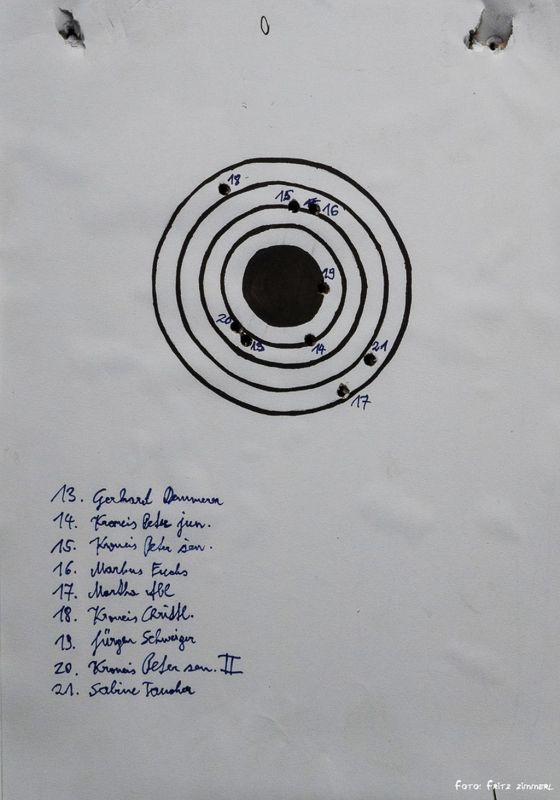 0
18
15
16
19
20
13
14
21
17
13. Gerhard
14. Kroneis Peter jun.
15. Kroneis Peter sen.
16. Markus Fuchs
17. Martha Abl
18. Kroneis Christl.
19. Jürgen Schweiger
20. Kroneis Peter sen. II
21. Sabine Taucher
FOTO: FRITZ ZIMMERL